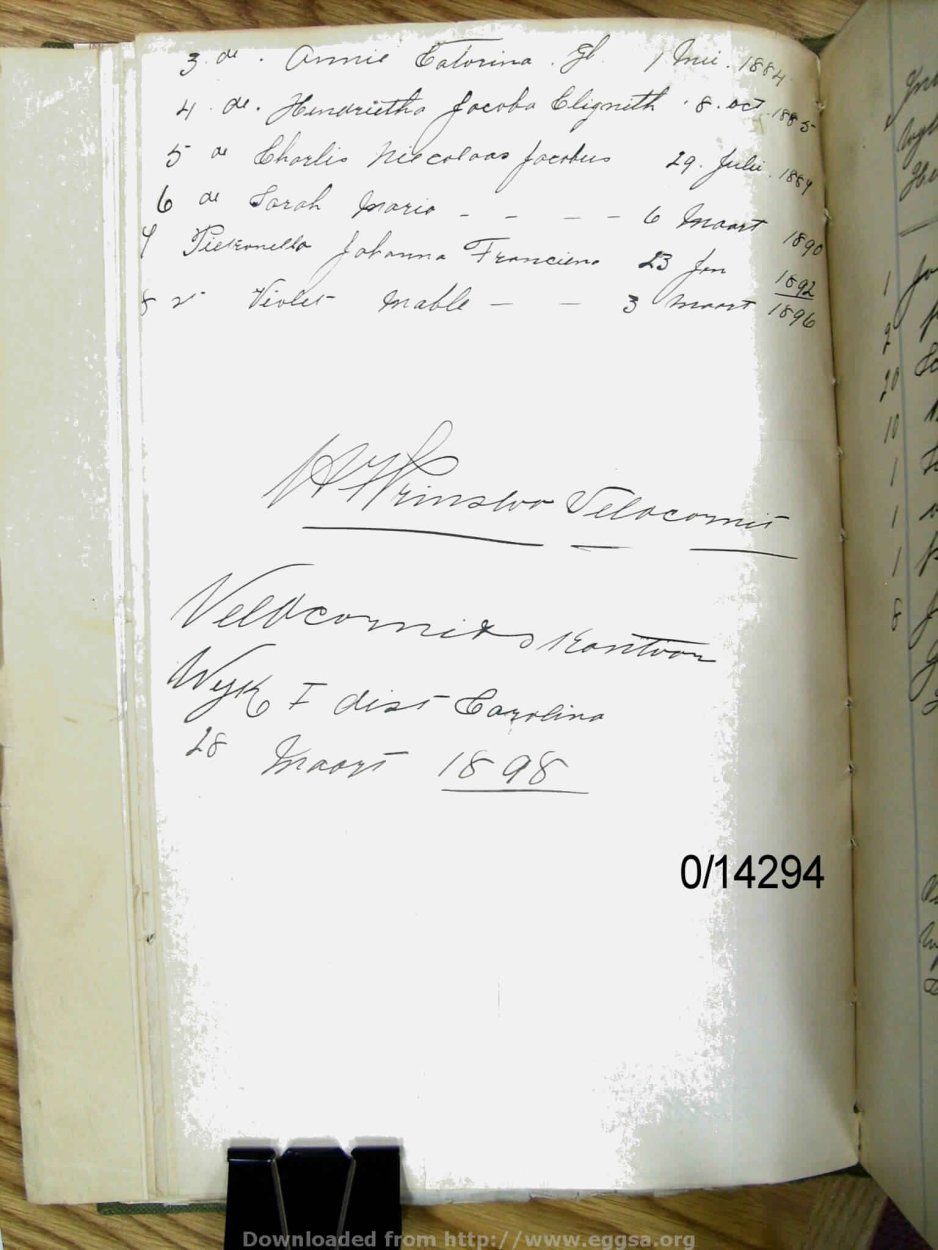 3. de. Annie Catorina. Gb. 1 Mei. 1884
4. de. Hendrietha Jacoba Cligneth. 8. Oct. 1885
5 de Charlis Niecolaas Jacobus 29. Julie. 1889
6 de Sarah Maria - - - - 6 Maart 1890
7 Pietronella Johanna Franciena 23 Jan 1892
8 Violet Mable - - 3 Maart 1896
Prinsloo Veldcornit
Veldcornits Kantoor
Wyk I dist Carolina
28 Maart 1898
0/14294
Downloaded from http://www.eggsa.org